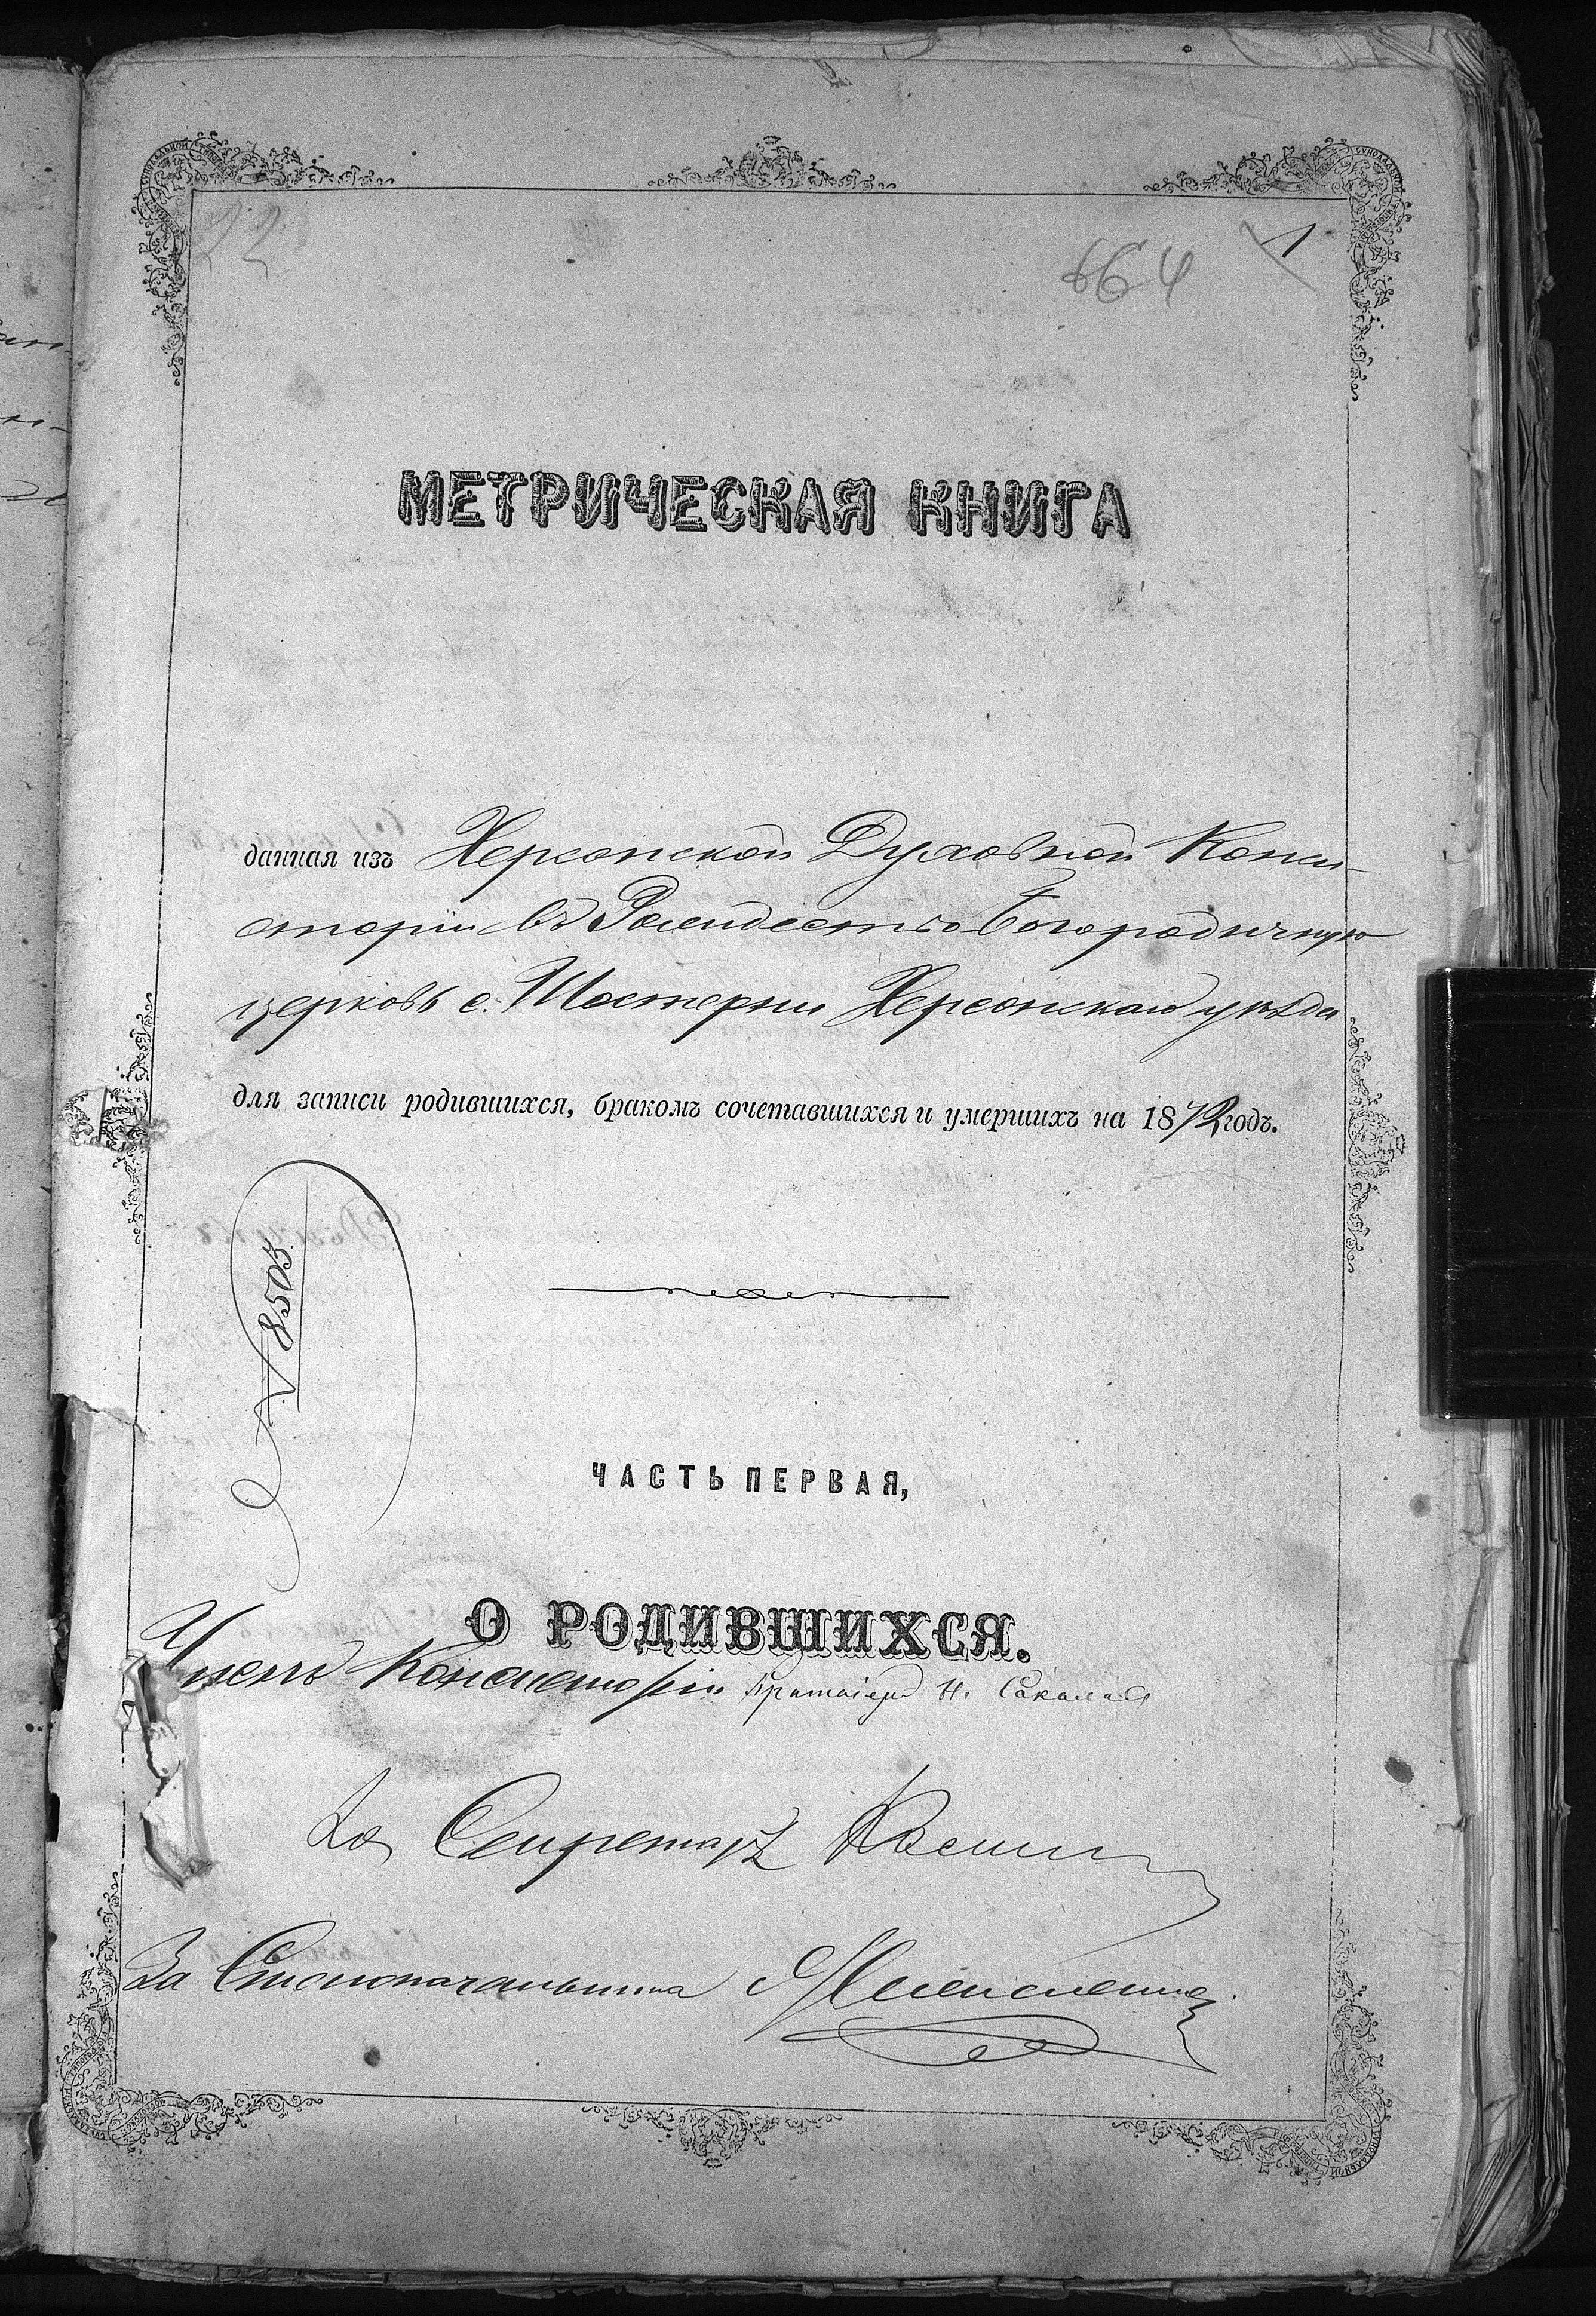 22
664
1
МЕТРИЧЕСКАЯ КНИГА
данная изъ Херсонской Духовной Конси-
сторіи въ Рождество-Богородичную
церковь с. Шестерни Херсонскаго уѣзда
для записи родившихся, бракомъ сочетавшихся и умершихъ на 1872 годъ.
№ 8505
ЧАСТЬ ПЕРВАЯ,
О РОДИВШИХСЯ.
Членъ Консисторіи Протоіерей Н. Соколовъ
За Секретарь
За Столоначальника